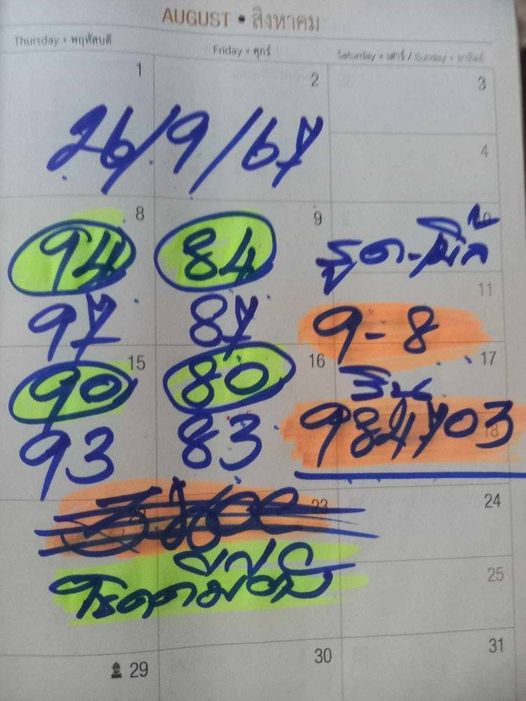 AUGUST • สิงหาคม
Thursday • พฤหัสบดี Friday • ศุกร์ Saturday • เสาร์ / Sunday • อาทิตย์
1 2 3
4
26/9/67
8 9 10
94 84 รูด-
11
97 87 9-8
15 16 17
90 80
18
93 83 984703
23 24
โชคดีมีชัย
25
29 30 31